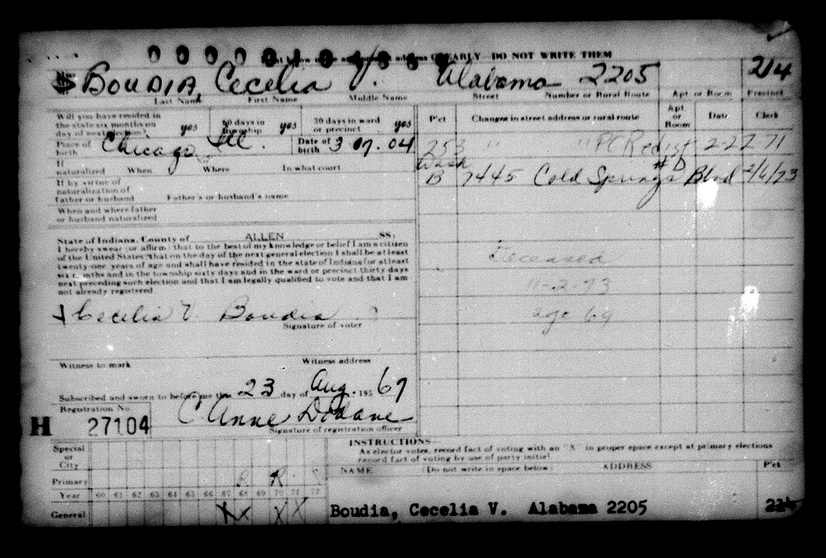 CLEARLY DO NOT WRITE THEM
BOUDIA, Cecelia V. Alabama 2205 214
Last Name First Name Middle Name Street Number or Rural Route Apt. or Room Precinct
Will you have resided in the state six months on day of next election? yes 60 days in township yes 30 days in ward or precinct yes
Pc't Changes in street address or rural route Apt or Room Date Clerk
Place of birth Chicago Ill. Date of birth 3 07 04
253 " " PC Redist 2-22-71
If naturalized When Where In what court
Wash B 7445 Cold Springs Blvd #D 2/6/73
If by virtue of naturalization of father or husband Father's or husband's name
When and where father or husband naturalized
State of Indiana, County of ALLEN SS:
I hereby swear (or affirm) that to the best of my knowledge or belief I am a citizen
of the United States that on the day of the next general election I shall be at least
twenty-one years of age and shall have resided in the state of Indiana for at least
six months and in the township sixty days and in the ward or precinct thirty days
next preceding such election and that I am legally qualified to vote and that I am
not already registered
Deceased
11-2-73
age 69
Cecelia V. Boudia
Signature of voter
Witness to mark Witness address
Subscribed and sworn to before me this 23 day of Aug. 195 67
Registration No.
H 27104 Anne
Signature of registration officer
INSTRUCTIONS
As elector votes, record fact of voting with an "X" in proper space except at primary elections
record fact of voting by use of party initial
Special or City
NAME (Do not write in space below) ADDRESS Pc't
Primary R R
Year 60 61 62 63 64 65 66 67 68 69 70 71 72
General X X X X
Boudia, Cecelia V. Alabama 2205 214